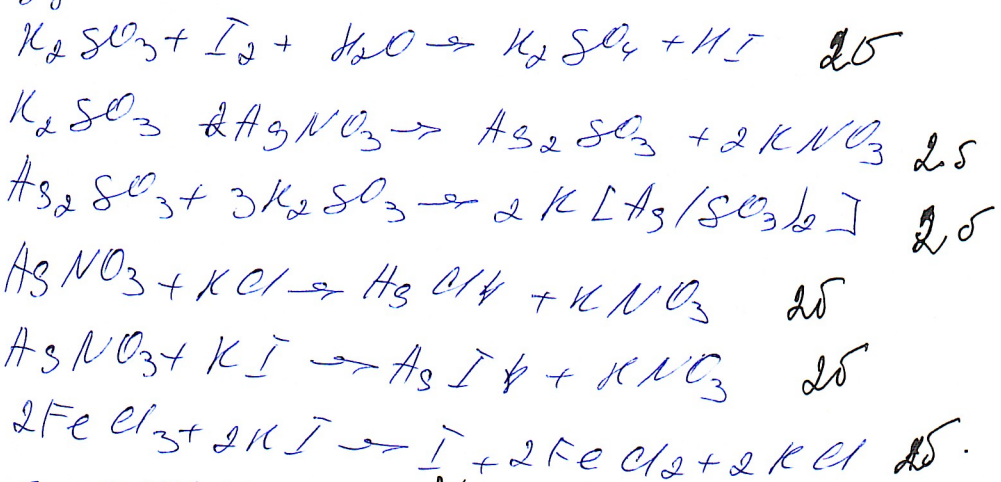 K₂SO₃ + I₂ + H₂O → K₂SO₄ + HI 2б
K₂SO₃ 2AgNO₃ → Ag₂SO₃ + 2KNO₃ 2б
Ag₂SO₃ + 3K₂SO₃ → 2K[Ag(SO₃)₂] 2б
AgNO₃ + KCl → AgCl↓ + KNO₃ 2б
AgNO₃ + KI → AgI↓ + KNO₃ 2б
2FeCl₃ + 2KI → I + 2FeCl₂ + 2KCl 2б.